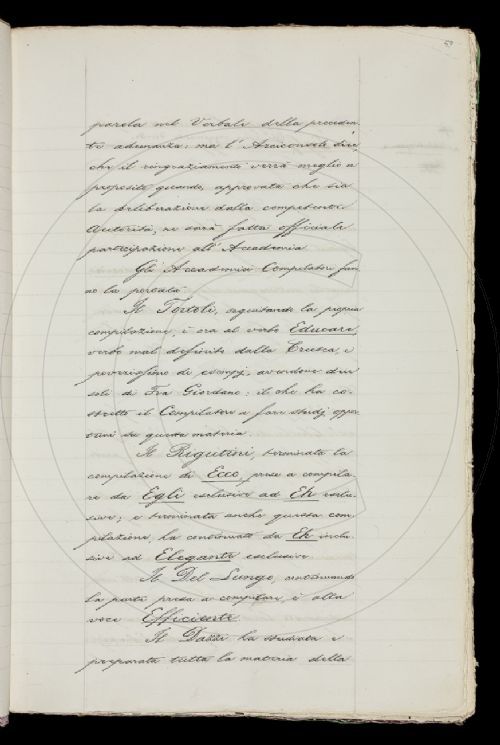 59
parola nel Verbale della preceden
te adunanza: ma l'Arciconsolo dice
che il ringraziamento verrà meglio a
proposito quando, approvata che sia
la deliberazione dalla competente
Autorità, ne sarà fatta officiale
partecipazione all'Accademia.
Gli Accademici Compilatori fan
no la portata.
Il Tortoli, seguitando la propria
compilazione, è ora al verbo Educare,
verbo mal definito dalla Crusca, e
poverissimo di esempj, avendone due
soli di Fra Giordano: il che ha co-
stretto il Compilatore a fare studj oppor
tuni su questa materia.
Il Rigutini, terminata la
compilazione di Ecco, prese a compila
re da Egli esclusive ad Eh inclu
sive; e terminata anche questa com
pilazione, ha continuato da Eh inclu
sive ad Elegante esclusive.
Il Del Lungo, continuando
la parte presa a compilare, è alla
voce Efficiente.
Il Dazzi ha studiata e
preparata tutta la materia della